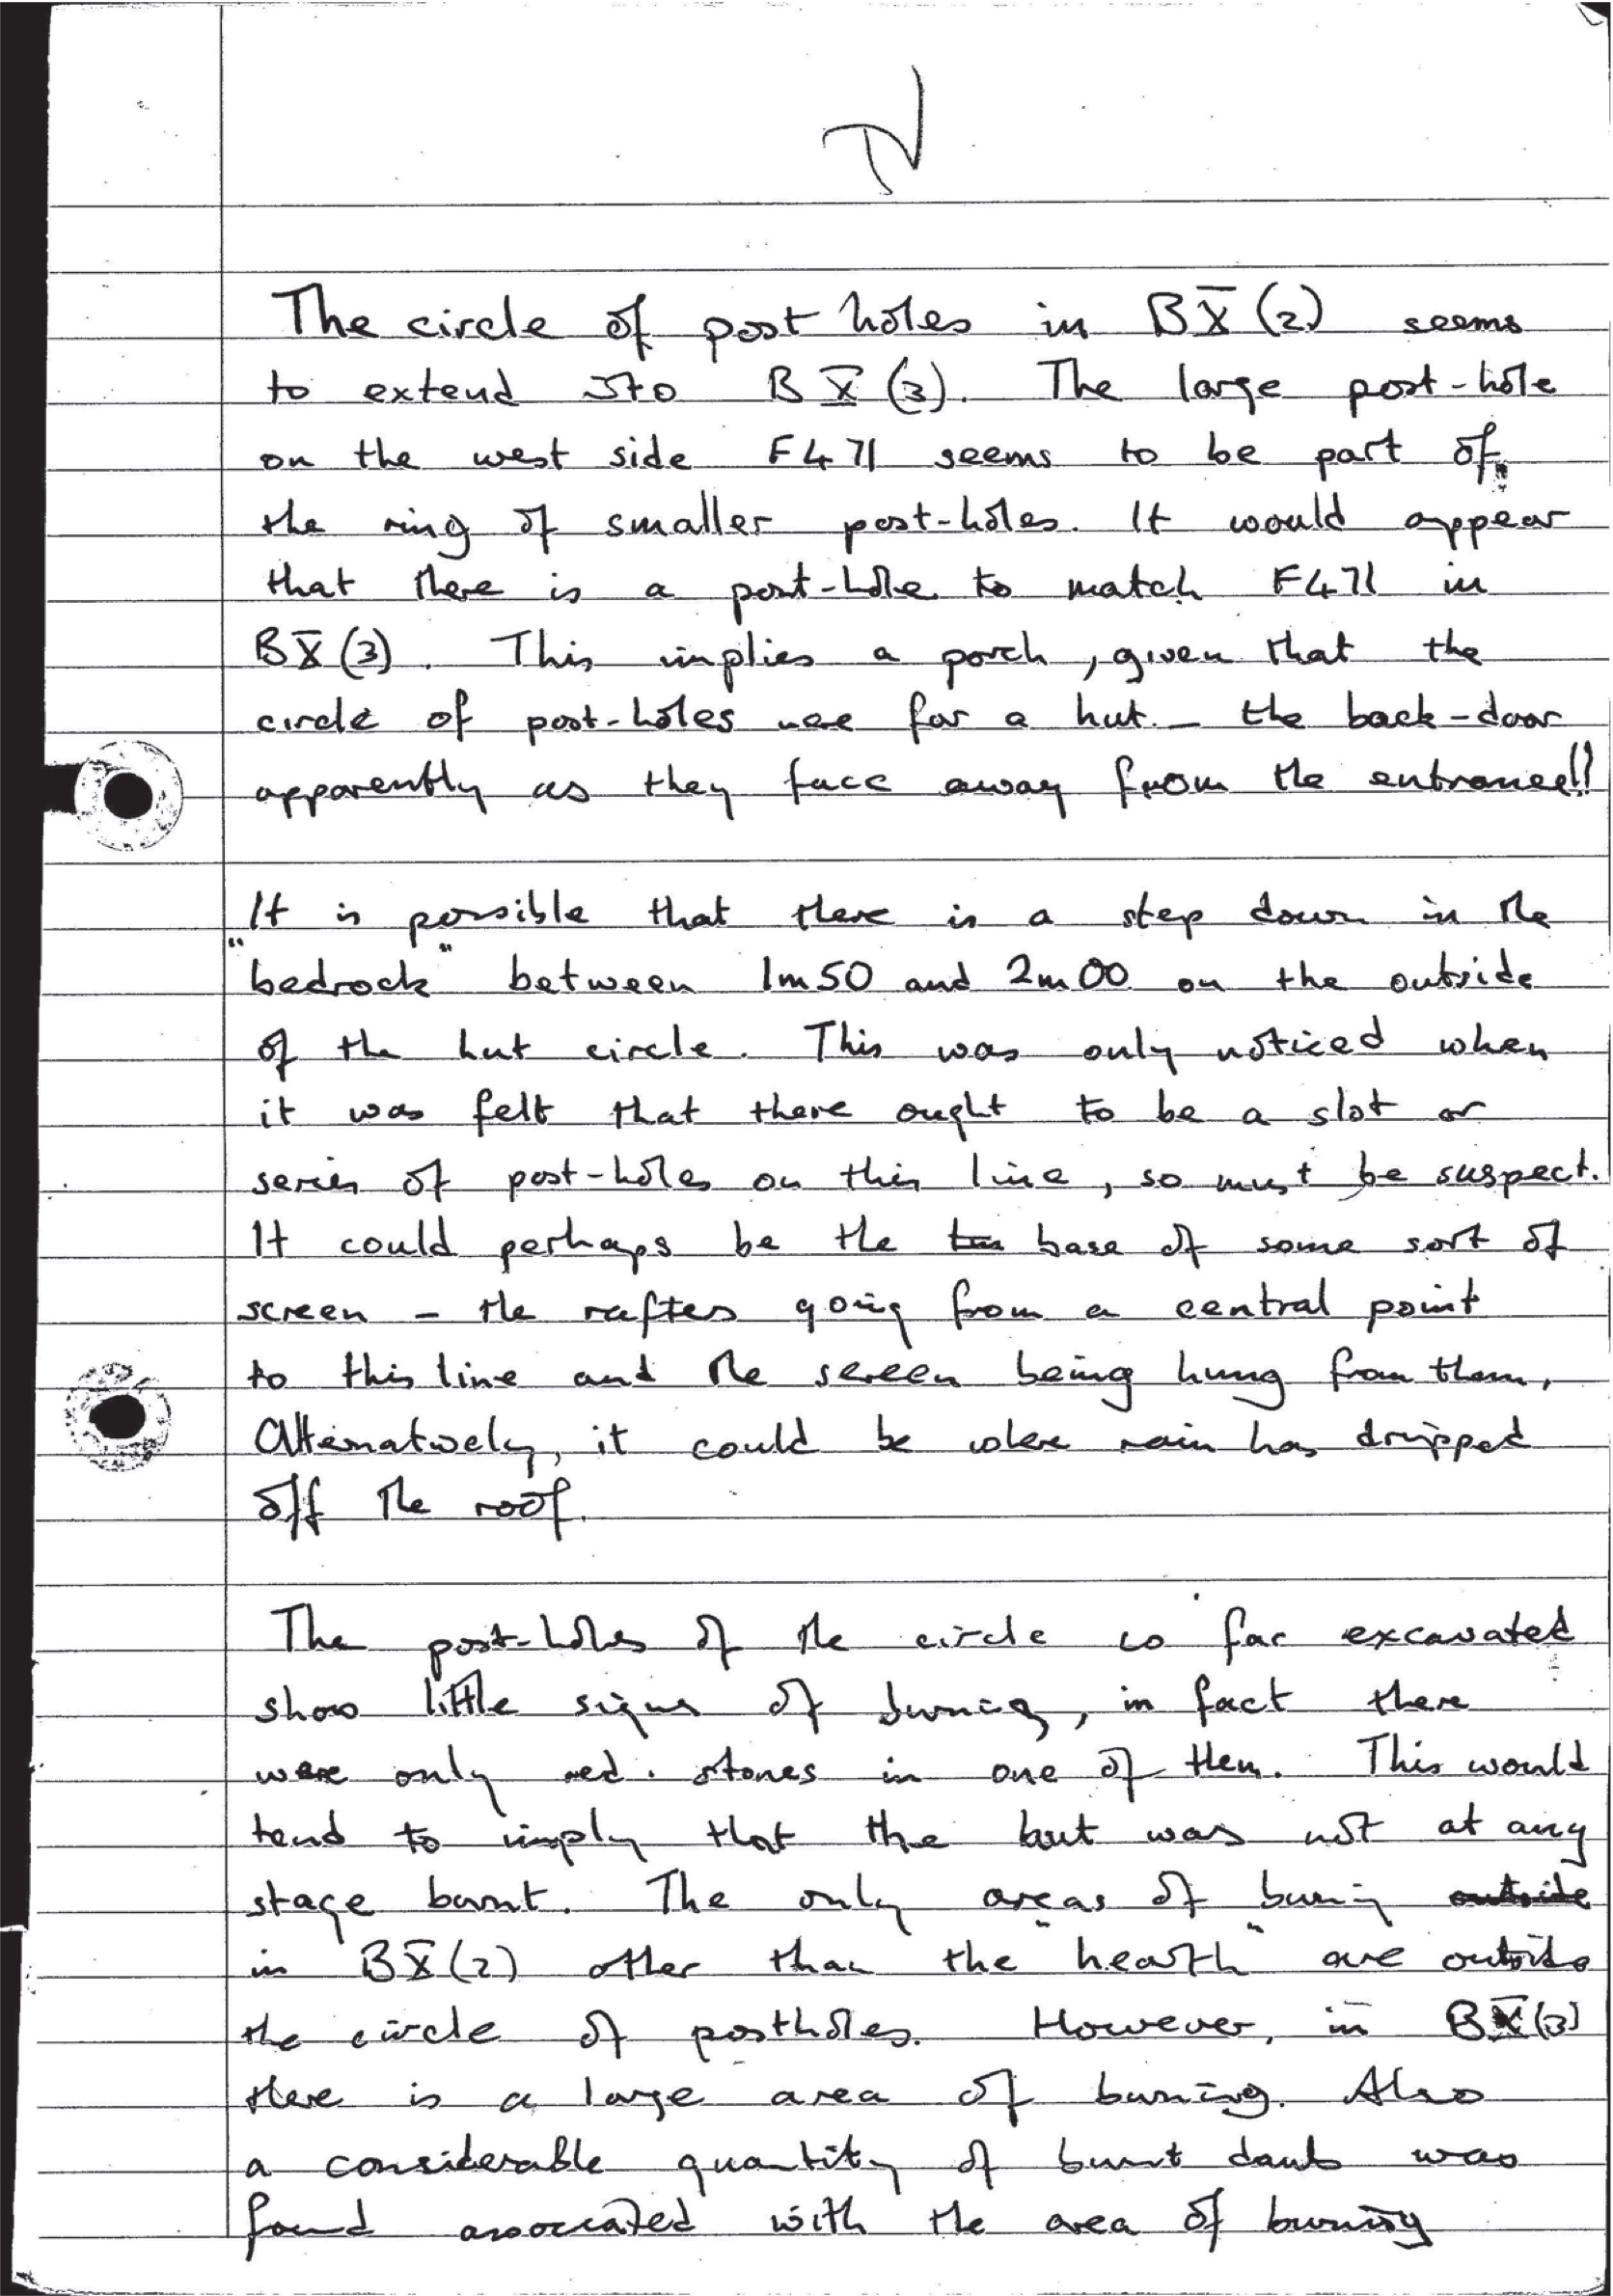 The circle of post holes in BX̅ (2) seems
to extend into B X̅ (3). The large post-hole
on the west side F471 seems to be part of
the ring of smaller post-holes. It would appear
that there is a post-hole to match F471 in
BX̅ (3). This implies a porch, given that the
circle of post-holes were for a hut - the back-door
apparently as they face away from the entrance!!
It is possible that there is a step down in the
"bedrock" between 1m50 and 2m00 on the outside
of the hut circle. This was only noticed when
it was felt that there ought to be a slot or
series of post-holes on this line, so must be suspect.
It could perhaps be the base of some sort of
screen - the rafters going from a central point
to this line and the screen being hung from them,
Alternatively, it could be where rain has dripped
off the roof.
The post-holes of the circle so far excavated
show little signs of burning, in fact there
were only red. stones in one of them. This would
tend to imply that the hut was not at any
stage burnt. The only areas of burning outside
in BX̅ (2) other than the "hearth" are outside
the circle of postholes. However, in BX̅ (3)
there is a large area of burning. Also
a considerable quantity of burnt daub was
found associated with the area of burning